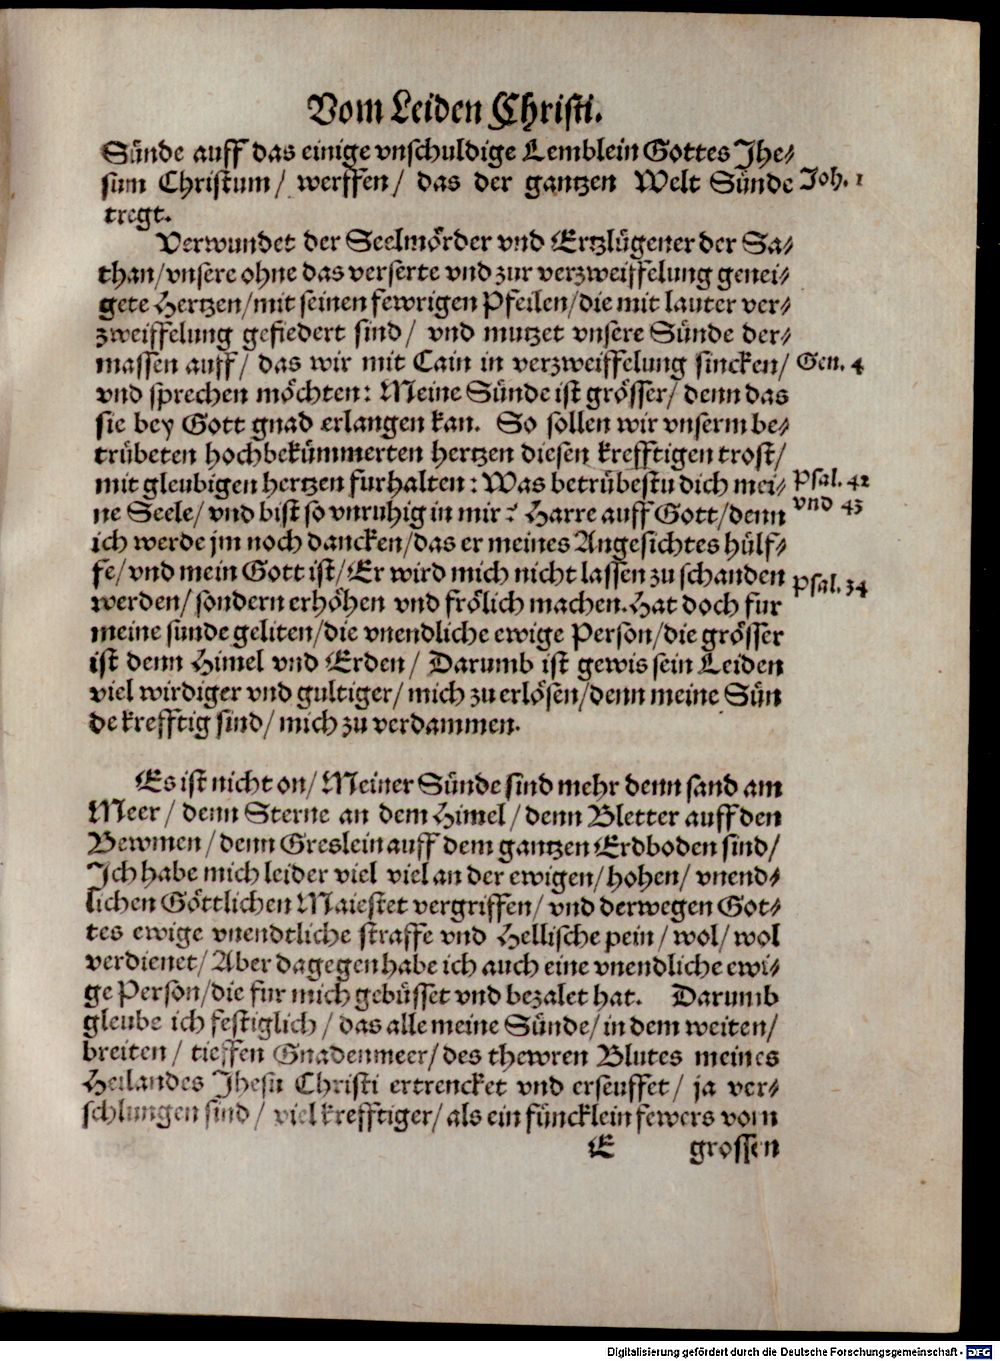 Vom Leiden Christi.
Sünde auff das einige vnschuldige Lemblein Gottes Jhe-
sum Christum/ werffen/ das der gantzen Welt Sünde Joh. 1
tregt.
Verwundet der Seelmörder vnd Ertzlügener der Sa-
than/vnsere ohne das verserte vnd zur verzweiffelung genei-
gete Hertzen/mit seinen fewrigen Pfeilen/die mit lauter ver-
zweiffelung gefiedert sind/ vnd mutzet vnsere Sünde der-
massen auff/ das wir mit Cain in verzweiffelung sincken/ Gen. 4
vnd sprechen möchten: Meine Sünde ist grösser/ denn das
sie bey Gott gnad erlangen kan. So sollen wir vnserm be-
trübeten hochbekümmerten hertzen diesen krefftigen trost/
mit gleubigen hertzen furhalten: Was betrübestu dich mei- Psal. 42
ne Seele/ vnd bist so vnruhig in mir? Harre auff Gott/denn vnd 43
ich werde jm noch dancken/das er meines Angesichtes hülf-
fe/vnd mein Gott ist/Er wird mich nicht lassen zu schanden Psal. 34
werden/ sondern erhöhen vnd frölich machen. Hat doch fur
meine sunde geliten/die vnendliche ewige Person/die grösser
ist denn Himel vnd Erden/ Darumb ist gewis sein Leiden
viel wirdiger vnd gultiger/ mich zu erlösen/denn meine Sün
de krefftig sind/ mich zu verdammen.
Es ist nicht on/ Meiner Sünde sind mehr denn sand am
Meer/ denn Sterne an dem Himel/ denn Bletter auff den
Bewmen/denn Greslein auff dem gantzen Erdboden sind/
Ich habe mich leider viel viel an der ewigen/hohen/ vnend-
lichen Göttlichen Maiestet vergriffen/ vnd derwegen Got-
tes ewige vnendtliche straffe vnd Hellische pein/ wol/ wol
verdienet/ Aber dagegen habe ich auch eine vnendliche ewi-
ge Person/die fur mich gebüsset vnd bezalet hat. Darumb
gleube ich festiglich/ das alle meine Sünde/in dem weiten/
breiten/ tieffen Gnadenmeer/des thewren Blutes meines
Heilandes Jhesu Christi ertrencket vnd erseuffet/ ja ver-
schlungen sind/ viel krefftiger/ als ein füncklein fewers vom
E grossen
Digitalisierung gefördert durch die Deutsche Forschungsgemeinschaft - DFG